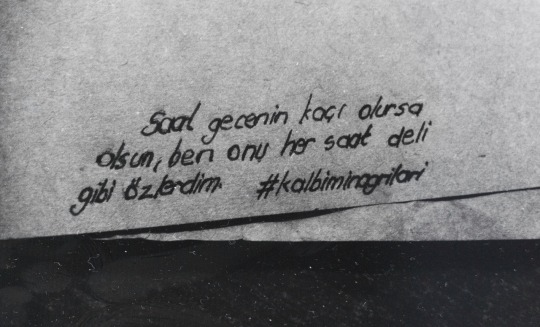 Saat gecenin kaçı olursa
olsun, ben onu her saat deli
gibi özlerdim. #kalbiminagrilari